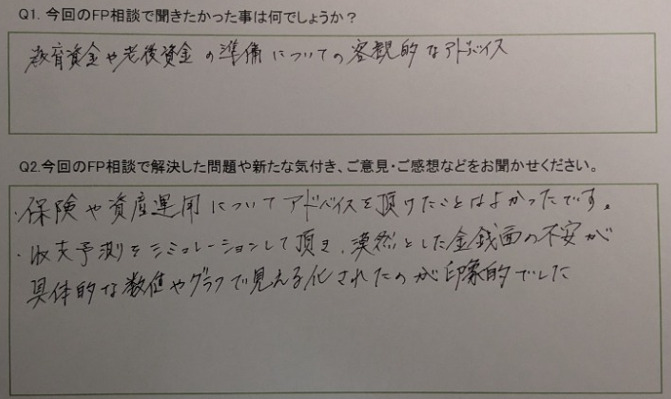 Q1. 今回のFP相談で聞きたかった事は何でしょうか？
教育資金や老後資金の準備についての客観的なアドバイス
Q2.今回のFP相談で解決した問題や新たな気付き、ご意見・ご感想などをお聞かせください。
・保険や資産運用についてアドバイスを頂けたことはよかったです。
・収支予測をシミュレーションして頂き、漠然とした金銭面の不安が
具体的な数値やグラフで見える化されたのが印象的でした